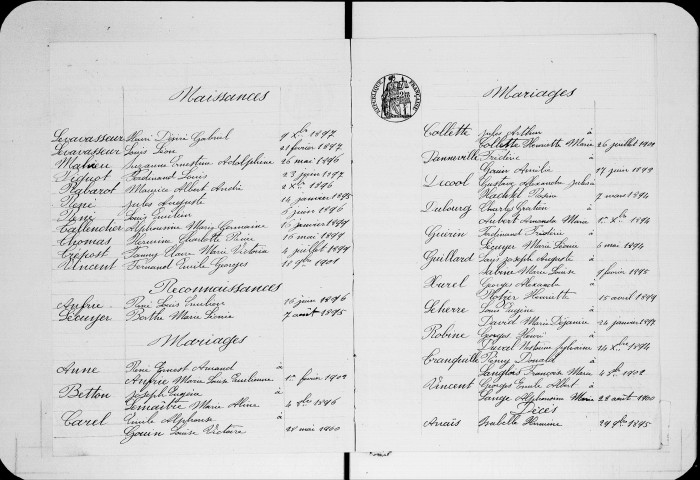 Naissances
Levavasseur Henri Désiré Gabriel 9 Xbre 1897
Levavasseur Louis Léon 21 février 1897
Mahieu Suzanne Ernestine Adolphine 26 mai 1896
Piquot Ferdinand Louis 23 juin 1897
Rabarot Maurice Albert André 2 Xbre 1896
René Jules Auguste 14 janvier 1895
Louis 6 juin 1896
Callencher Alphonsine Marie Germaine 15 janvier 1899
Thomas Charlotte 16 mai 1899
Crépost Fanny Claire Marie Victoria 4 juillet 1899
Vincent Fernand Emile Georges 18 9bre 1901
Reconnaissances
Anfrie René Louis 26 juin 1896
Lécuyer Berthe Marie Léonie 7 août 1895
Mariages
Anne René Ernest Armand à
Anfrie Marie Louise 1er février 1902
Betton Joseph Eugène à
Lemaître Marie Aline 4 1896
Carel Emile Alphonse à
Louise Victoire 28 mai 1900
RÉPUBLIQUE FRANÇAISE
Mariages
Collette Jules Arthur à
Collette Henriette Marie 26 juillet 1901
Danneville Frédéric à
17 juin 1899
Lecool Gustave Alexandre Jules à
7 mars 1894
Dubourg Charles Gratien à
Aubert Amanda Marie 1er Xbre 1894
Guérin Ferdinand Frédéric à
Lécuyer Marie Léonie 6 mai 1894
Guillard Joseph Auguste à
Marie Louise 9 février 1895
Hurel Georges Alexandre à
Henriette 15 avril 1899
Scherre Louis Eugène à
David Marie Déjanire 24 janvier 1897
Robine Georges Henri à
Duval Sylvaine 24 Xbre 1894
Donald à
Langlois François Marie 4 1902
Vincent Georges Emile Albert à
Lange Alphonsine Marie 28 août 1900
Décès
Anaïs Isabelle 29 9bre 1895